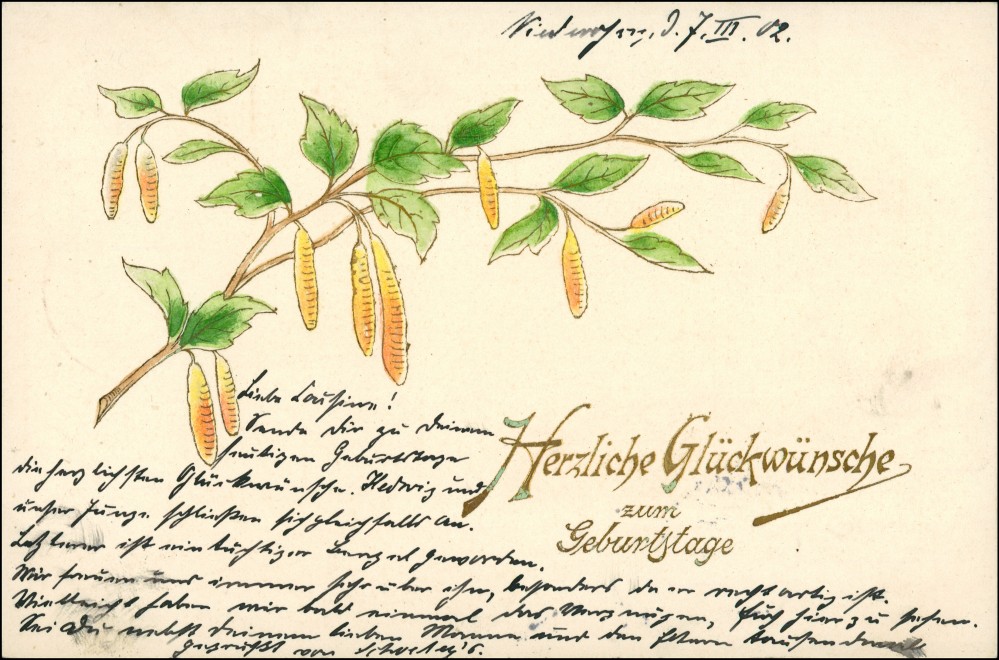 d. 7. III. 02.
Liebe Cousine!
Sende Dir zu Deinem
heutigen Geburtstage
die herzlichsten Glückwünsche. Hedwig und
unser Junge schließen sich gleichfalls an.
Letzterer ist ein tüchtiger Bengel geworden.
Wir freuen uns immer sehr über ihn, besonders da er recht artig ist.
Vielleicht haben wir bald einmal das Vergnügen, Euch hier zu sehen.
Sei Du nebst Deinem lieben Manne und den Eltern tausendmal
gegrüßt von
Herzliche Glückwünsche
zum
Geburtstage